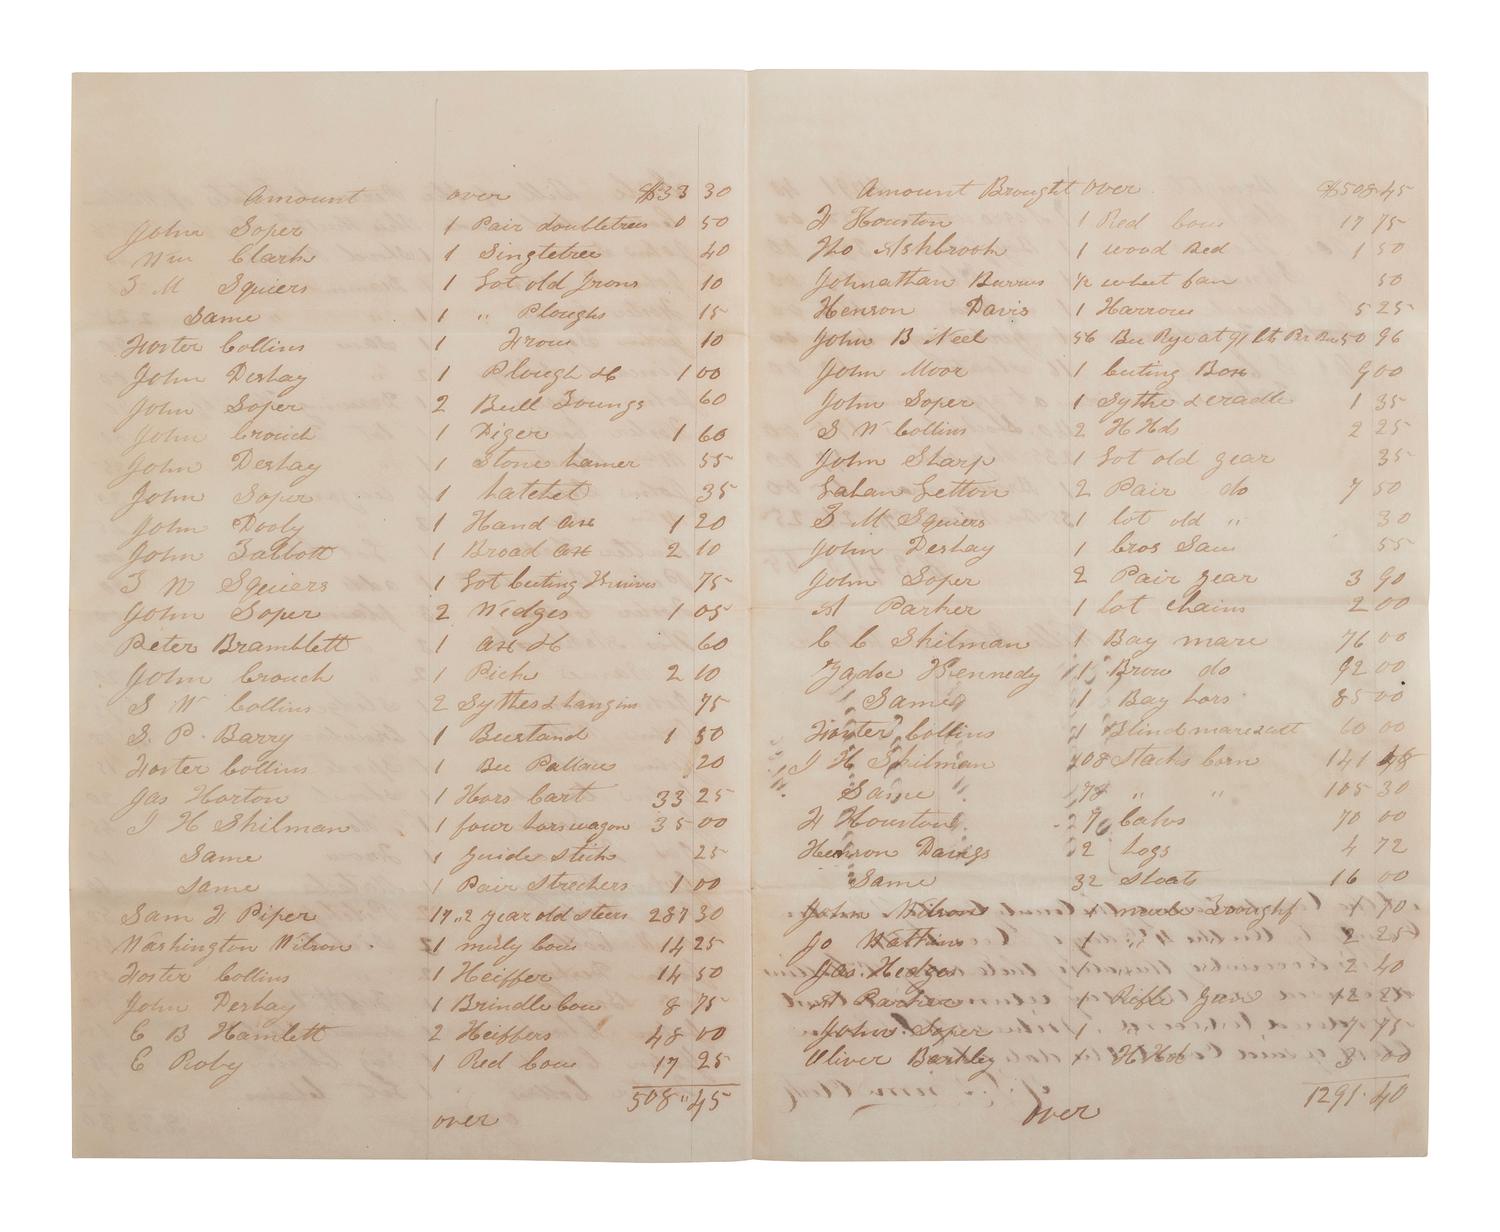 Amount over $33 30
John Soper 1 Pair doubletrees 0 50
Wm Clark 1 Singletree 40
T M Squiers 1 Lot old Irons 10
Same 1 " Ploughs 15
Foster Collins 1 Frow 10
John Deshay 1 Plough &c 1 00
John Soper 2 Bull Toungs 60
John Crouch 1 Diger 1 60
John Deshay 1 Stone hamer 55
John Soper 1 hatchet 35
John Dooly 1 Hand axe 1 20
John Talbott 1 Broad axe 2 10
T W Squiers 1 Lot Cuting Knives 75
John Soper 2 Wedges 1 05
Peter Bramblett 1 axe &c 60
John Crouch 1 Pick 2 10
S W Collins 2 Sythes & hangins 75
S. P. Barry 1 Beestand 1 50
Foster Collins 1 Bee Pallace 20
Jas Horton 1 Hors Cart 33 25
J H Skilman 1 four hors wagon 35 00
Same 1 Guide stick 25
Same 1 Pair Strechers 1 00
Sam H Piper 17 "2 year old steers 287 30
Washington Wilson 1 muly Cow 14 25
Foster Collins 1 Heiffer 14 50
John Deshay 1 Brindle Cow 8 75
C B Hamlett 2 Heiffers 48 00
E Roby 1 Red Cow 17 25
508 " 45
over
Amount Brought over $508.45
F Houston 1 Red Cow 17 75
Tho Ashbrook 1 wood Bed 1 50
Johnathan Burrus 1/2 wheet fan 50
Henson Davis 1 Harrow 5 25
John B Neel 56 Bu Rye at 91 Cts Per Bu 50 96
John Moor 1 Cuting Box 9 00
John Soper 1 Sythe & cradle 1 35
S W Collins 2 H Hds 2 25
John Sharp 1 Lot old gear 35
Laban Letton 2 Pair do 7 50
T M Squiers 1 lot old " 30
John Deshay 1 Cros Saw 55
John Soper 2 Pair gear 3 90
A Parker 1 lot chains 2 00
C C Skilman 1 Bay mare 76 00
Zadoc Kennedy 1 Brow do 92 00
Same 1 Bay hors 85 00
Foster Collins 1 Blind mare & colt 60 00
J H Skilman 108 Stacks Corn 141 48
Same 78 " " 105 30
F Houston 9 Calvs 70 00
Henson Davis 2 hogs 4 72
Same 32 Shoats 16 00
John Wilson 1 Troughf 70
Jo Watkins 2 25
Jas. Hedges 2 40
A Parker 1 Rifle Gun
John Soper 1
Oliver Barkley H Hd 00
1291.40
over